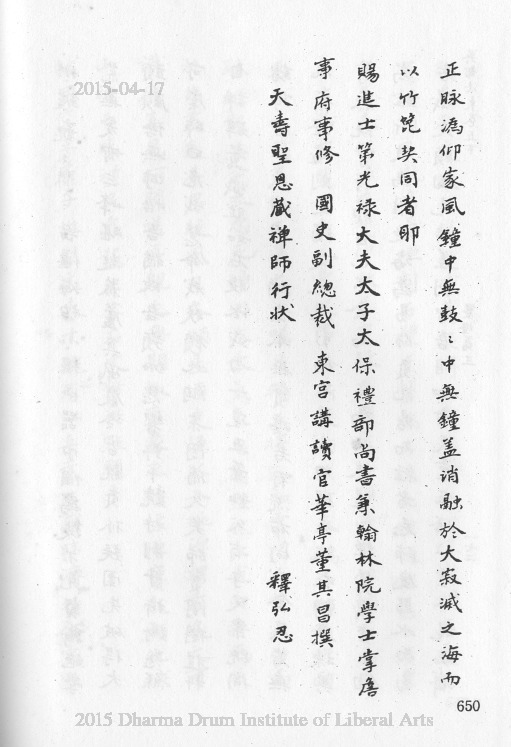 正脉溈仰家風鐘中無鼓〻中無鐘盖消融於大寂滅之海而
以竹篦契同者耶
賜進士第光祿大夫太子太保禮部尚書兼翰林院學士掌詹
事府事修 國史副緫裁 東宮講讀官華亭董其昌撰
天壽聖恩藏禅師行状
釋弘忍
650
2015-04-17
2015 Dharma Drum Institute of Liberal Arts